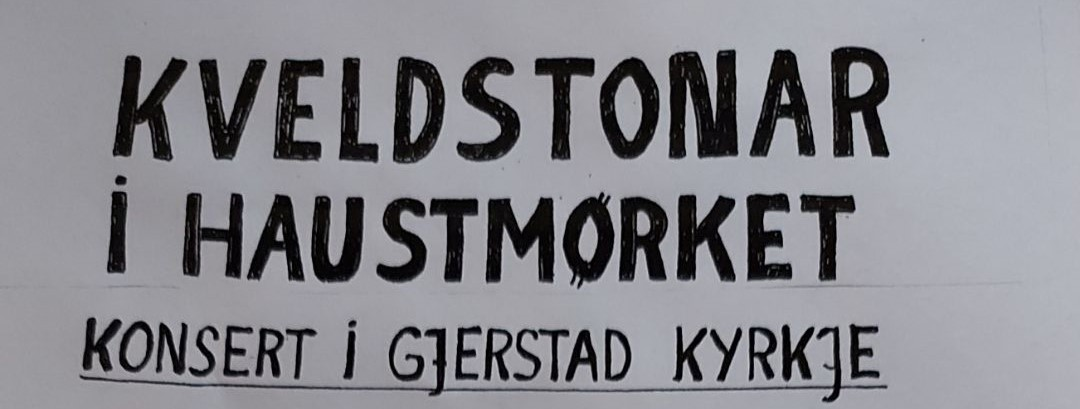 KVELDSTONAR
i HAUSTMØRKET
KONSERT i GJERSTAD KYRKJE